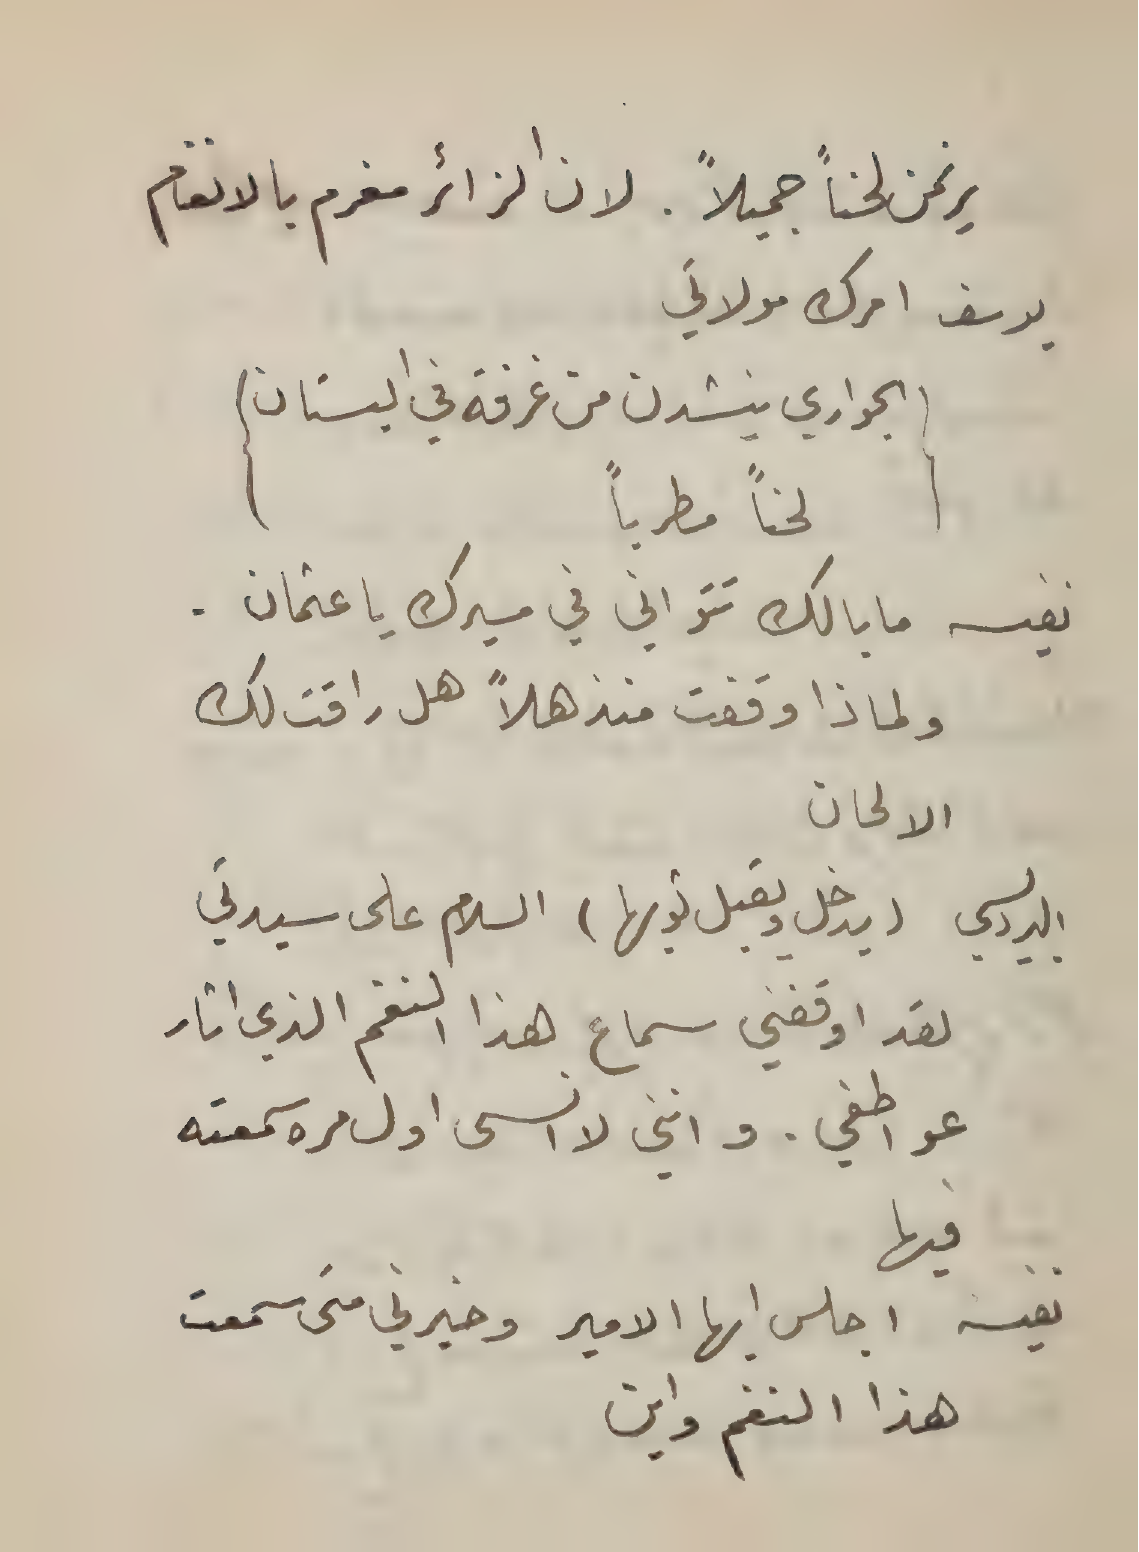 يرنمن لحناً جميلاً . لان الزائر مغرم بالانغام
يوسف امرك مولاتي
(الجواري ينشدن من غرفة في البستان)
لحناً مطرباً
نفيسه ما بالك تتواني في سيرك يا عثمان .
ولماذا وقفت منذهلاً هل راقت لك
الالحان
البرديسي (يدخل ويقبل ثوبها) السلام على سيدتي
لقد اوقفني سماع هذا النغم الذي اثار
عواطفي . و انني لا انسى اول مره سمعته
فيها
نفيسه اجلس ايها الامير وخبرني متى سمعت
هذا النغم واين